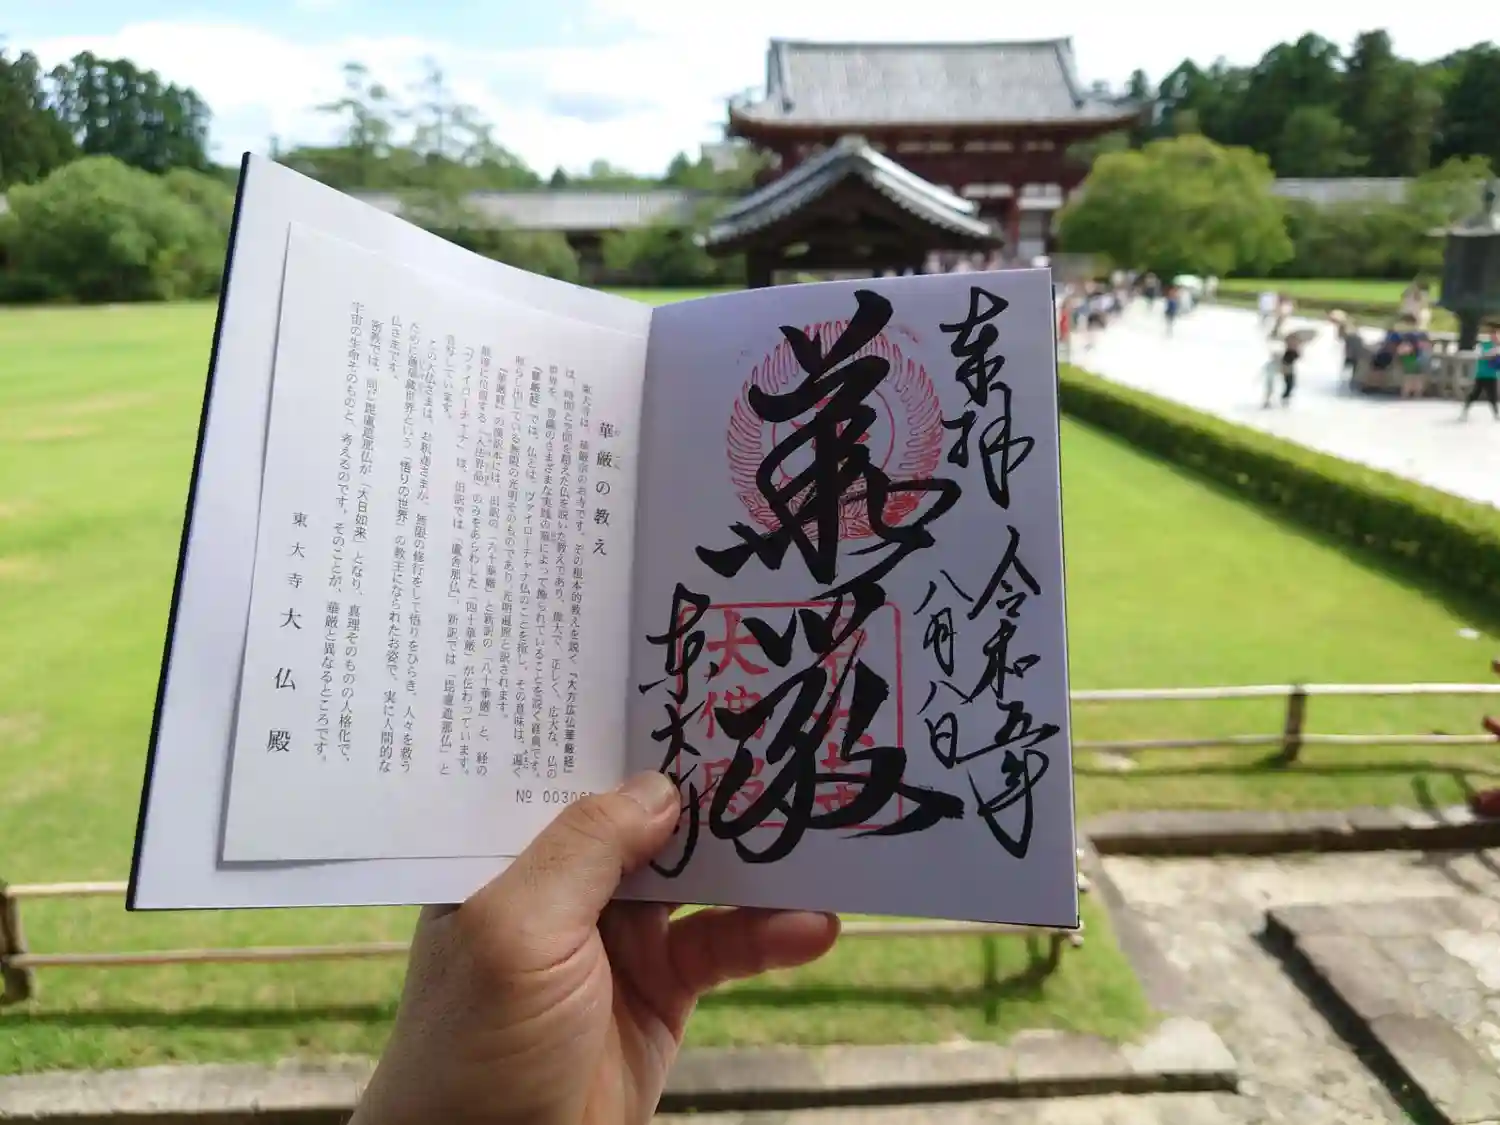 奉拝 令和五年
八月八日
華厳
東大寺
大佛殿
華厳の教え
東大寺は、華厳宗のお寺です。その根本的教えを説く『大方広仏華厳経』
は、時間と空間を超えた仏を説いた教えであり、偉大で、正しく、広大な、仏の
世界を、菩薩のさまざまな実践の華によって飾られていることを説く経典です。
『華厳経』では、仏とは、ヴァイローチャナ仏のことを指し、その意味は、遍く
照らし出している無限の光明そのものであり、光明遍照と訳されます。
『華厳経』の漢訳本には、旧訳の「六十華厳」と新訳の「八十華厳」と、経の
最後に位置する「入法界品」のみをあらわした「四十華厳」が伝わっています。
「ヴァイローチャナ」は、旧訳では「盧舎那仏」、新訳では「毘盧遮那仏」と
音写しています。
この大仏さまは、お釈迦さまが、無限の修行をして悟りをひらき、人々を救う
ために蓮華蔵世界という「悟りの世界」の教主になられたお姿で、実に人間的な
仏さまです。
密教では、同じ毘盧遮那仏が「大日如来」となり、真理そのものの人格化で、
宇宙の生命そのものと、考えるのです。そのことが、華厳と異なるところです。
東大寺大仏殿
№ 0030